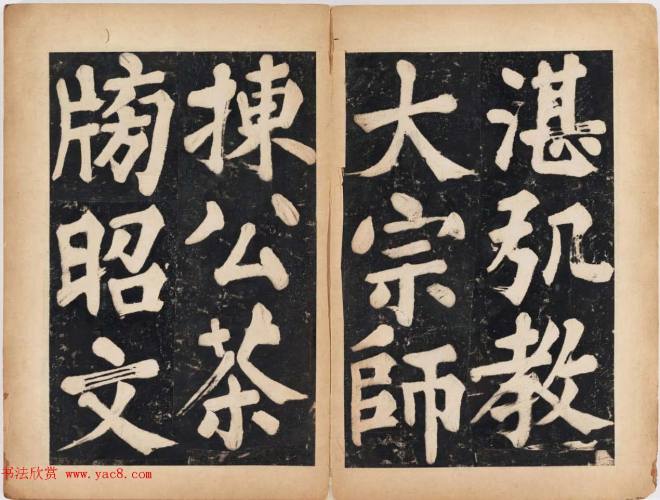 湛引教
大宗師
揀公茶
牓昭文
书法欣赏 www.yac8.com